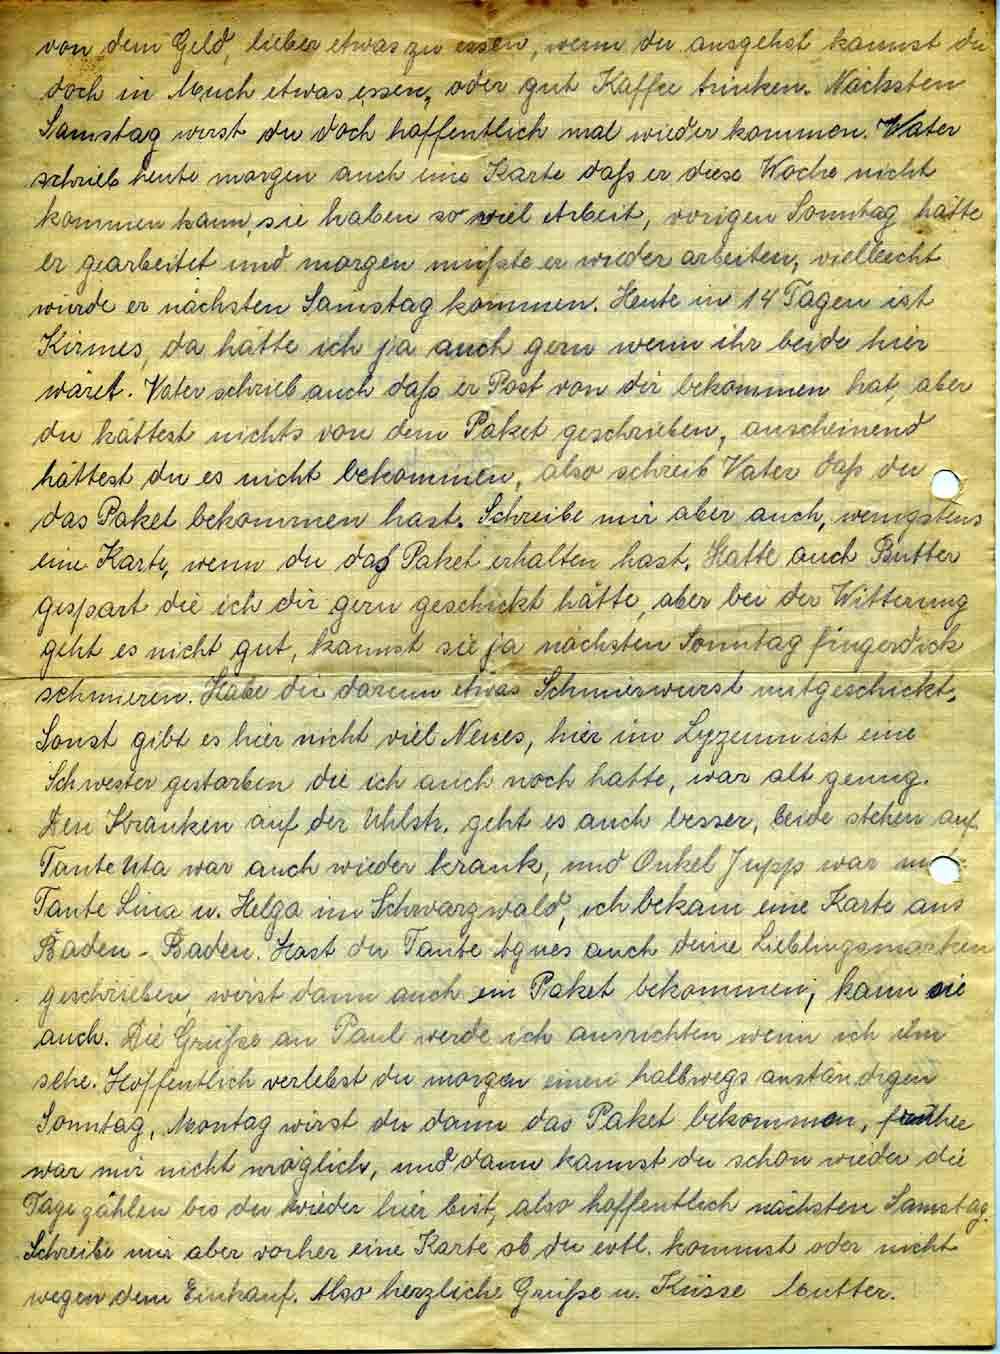 von dem Geld, lieber etwas zu essen, wenn du ausgehst kannst du
doch in Much etwas essen, oder gut Kaffee trinken. Nächsten
Samstag wirst du doch hoffentlich mal wieder kommen. Vater
schrieb heute morgen auch eine Karte daß er diese Woche nicht
kommen kann, sie haben so viel Arbeit, vorigen Sonntag hätte
er gearbeitet und morgen müßte er wieder arbeiten, vielleicht
würde er nächsten Samstag kommen. Heute in 14 Tagen ist
Kirmes, da hätte ich ja auch gern wenn ihr beide hier
wäret. Vater schrieb auch daß er Post von dir bekommen hat, aber
du hättest nichts von dem Paket geschrieben, anscheinend
hättest du es nicht bekommen, also schreib Vater daß du
das Paket bekommen hast. Schreibe mir aber auch, wenigstens
eine Karte, wenn du das Paket erhalten hast. Hatte auch Butter
gespart die ich dir gern geschickt hätte, aber bei der Witterung
geht es nicht gut, kannst sie ja nächsten Sonntag fingerdick
schmieren. Habe dir darum etwas Schmierwurst mitgeschickt.
Sonst gibt es hier nicht viel Neues, hier im Lyzeum ist eine
Schwester gestorben die ich auch noch hatte, war alt genug.
Den Kranken auf der Uhlstr. geht es auch besser, beide stehen auf
Tante Uta war auch wieder krank, und Onkel Jupp war mit
Tante Lina u. Helga im Schwarzwald, ich bekam eine Karte aus
Baden-Baden. Hast du Tante Agnes auch deine Lieblingsmarken
geschrieben, wirst dann auch ein Paket bekommen, kann sie
auch. Die Grüße an Paul werde ich ausrichten wenn ich ihn
sehe. Hoffentlich verlebst du morgen einen halbwegs anständigen
Sonntag, Montag wirst du dann das Paket bekommen, früher
war mir nicht möglich, und dann kannst du schon wieder die
Tage zählen bis du wieder hier bist, also hoffentlich nächsten Samstag.
Schreibe mir aber vorher eine Karte ob du evtl. kommst oder nicht
wegen dem Einkauf. Also herzliche Grüße u. Küsse Mutter.